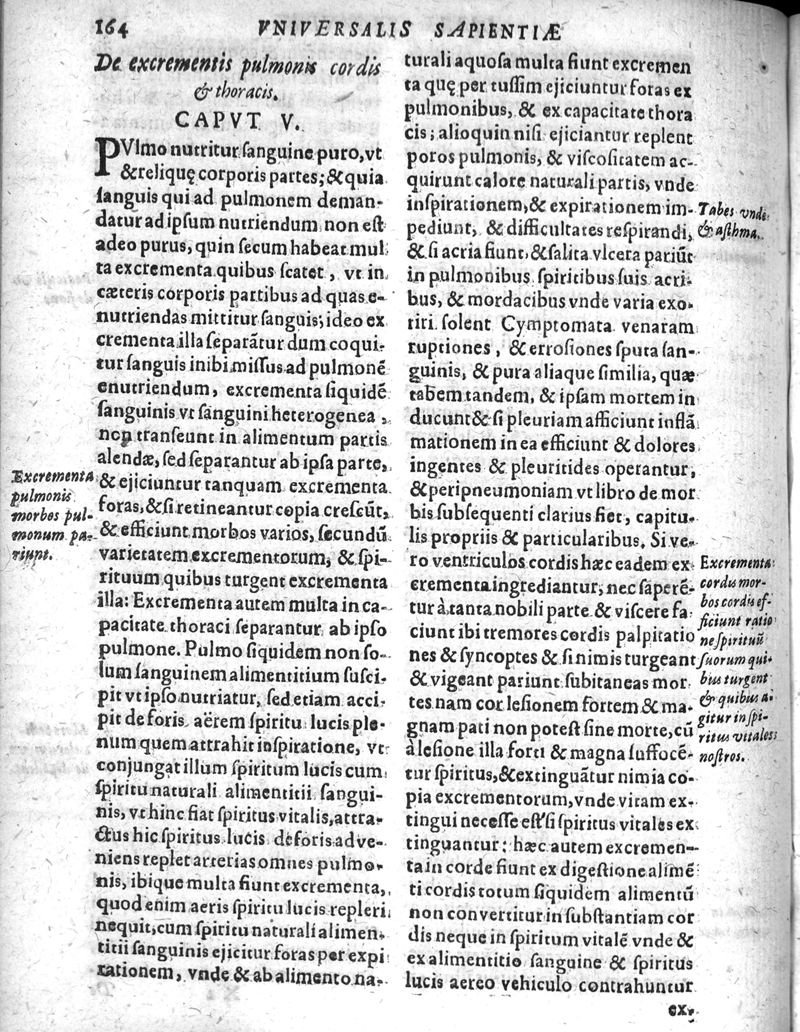 164 VNIVERSALIS SAPIENTIÆ
De excrementis pulmonis cordis
& thoracis.
CAPVT V.
PVlmo nutritur ſanguine puro, vt
& reliquę corporis partes; & quia
ſanguis qui ad pulmonem deman-
datur ad ipſum nutriendum non eſt
adeo purus, quin ſecum habeat mul
ta excrementa quibus ſcatet, vt in
cæteris corporis partibus ad quas e-
nutriendas mittitur ſanguis; ideo ex
crementa illa ſeparãtur dum coqui-
tur ſanguis inibi miſſus ad pulmonẽ
enutriendum, excrementa ſiquidẽ
ſanguinis vt ſanguini heterogenea,
non tranſeunt in alimentum partis
alendæ, ſed ſeparantur ab ipſa parte,
& ejiciuntur tanquam excrementa
foras, & ſi retineantur copia creſcũt,
& efficiunt morbos varios, ſecundũ
varietatem excrementorum, & ſpi-
rituum quibus turgent excrementa
illa: Excrementa autem multa in ca-
pacitate thoraci ſeparantur ab ipſo
pulmone. Pulmo ſiquidem non ſo-
lum ſanguinem alimentitium ſuſci-
pit vt ipſo nutriatur, ſed etiam acci-
pit de foris aërem ſpiritu lucis ple-
num quem attrahit inſpiratione, vt
conjungat illum ſpiritum lucis cum
ſpiritu naturali alimentitii ſangui-
nis, vt hinc fiat ſpiritus vitalis, attra-
ctus hic ſpiritus lucis de foris adve-
niens replet arterias omnes pulmo-
nis, ibique multa fiunt excrementa,
quod enim aeris ſpiritu lucis repleri
nequit, cum ſpiritu naturali alimen-
titii ſanguinis ejicitur foras per expi
rationem, vnde & ab alimento na-
Excrementa
pulmonis
morbos pul-
monum pa-
riunt.
turali aquoſa multa fiunt excremen
ta quę per tuſſim ejiciuntur foras ex
pulmonibus, & ex capacitate thora
cis; alioquin niſi ejiciantur replent
poros pulmonis, & viſcoſitatem ac-
quirunt calore naturali partis, vnde
inſpirationem, & expirationem im-
pediunt, & difficultates reſpirandi,
& ſi acria fiunt, & ſalita vlcera pariũt
in pulmonibus ſpiritibus ſuis acri-
bus, & mordacibus vnde varia exo-
riri ſolent Cymptomata venaram
ruptiones, & erroſiones ſputa ſan-
guinis, & pura aliaque ſimilia, quæ
tabem tandem, & ipſam mortem in
ducunt & ſi pleuriam afficiunt inflã
mationem in ea efficiunt & dolores
ingentes & pleuritides operantur,
& peripneumoniam vt libro de mor
bis ſubſequenti clarius fiet, capitu-
lis propriis & particularibus, Si ve-
ro ventriculos cordis hæc eadem ex
crementa ingrediantur, nec ſaperẽ-
tur à tanta nobili parte & viſcere fa
ciunt ibi tremores cordis palpitatio
nes & ſyncoptes & ſi nimis turgeant
& vigeant pariunt ſubitaneas mor-
tes nam cor leſionem fortem & ma-
gnam pati non poteſt ſine morte, cũ
à leſione illa forti & magna ſuffocẽ-
tur ſpiritus, & extinguãtur nimia co-
pia excrementorum, vnde vitam ex-
tingui neceſſe eſt ſi ſpiritus vitales ex
tinguantur: hæc autem excremen-
ta in corde fiunt ex digeſtione alimẽ
ti cordis totum ſiquidem alimentũ
non convertitur in ſubſtantiam cor
dis neque in ſpiritum vitalẽ vnde &
ex alimentitio ſanguine & ſpiritus
lucis aereo vehiculo contrahuntur
ex-
Tabes vnde
& aſthma.
Excrementa
cordis mor-
bos cordis ef-
ficiunt ratio
ne ſpirituũ
ſuorum qui-
bus turgent
& quibus ai
gitur in ſpi-
ritus vitales
noſtros.